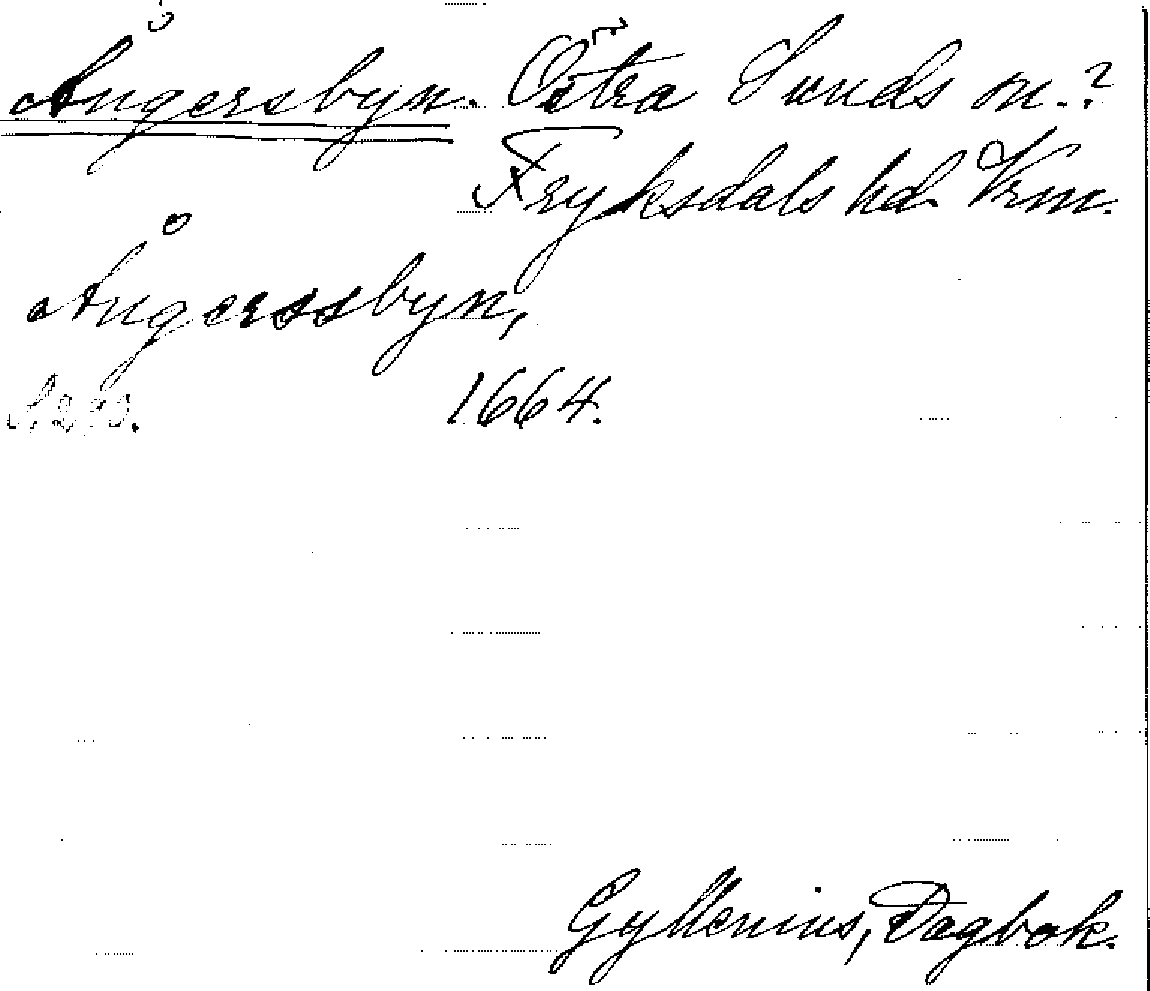 Ångersbyn. Östra Sunds sn.?
Fryksdals hd. Vrm.
Ångerssbyn,
1664.
Gyllenius, Dagbok.